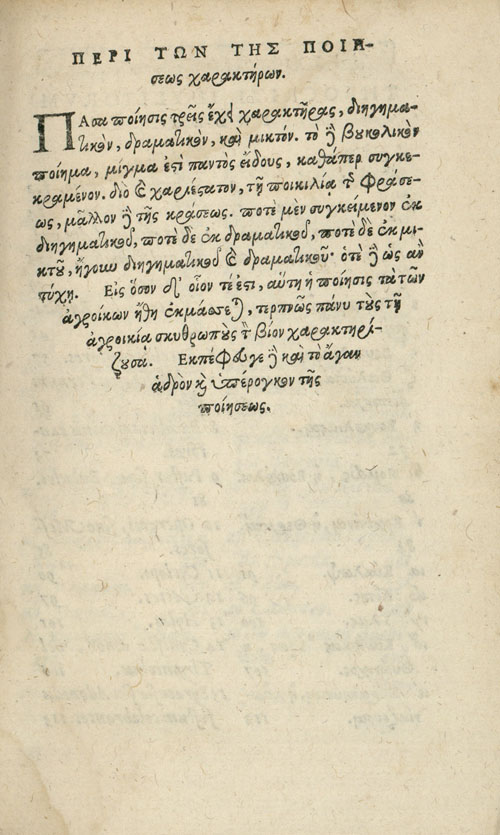 ΠΕΡΙ ΤΩΝ ΤΗΣ ΠΟΙΗ-
σεως χαρακτήρων.
ΠΑσα ποίησις τρεῖς ἔχει χαρακτῆρας, διηγημα-
τικὸν, δραματικὸν, καὶ μικτόν. τὸ ἢ βυκολικὸν
ποίημα, μίγμα ἐστὶ παντὸς εἴδους, καθάπερ συγκε-
κραμένον. διὸ καὶ χαριέστατον, τῇ ποικιλίᾳ τῆς φράσε-
ως, μᾶλλον ἢ τῆς κράσεως. ποτὲ μὲν συγκείμενον ἐκ
διηγηματικοῦ, ποτὲ δὲ ἐκ δραματικοῦ, ποτὲ δὲ ἐκ μι-
κτοῦ, ἤγουν διηγηματικοῦ καὶ δραματικοῦ· ὁτὲ ἢ ὡς ἂν
τύχῃ. Εἰς ὅσον δ' οἷον τέ ἐστι, αὕτη ἡ ποίησις τὰ τῶν
ἀγροίκων ἤθη ἐκμάσσεται, τερπνῶς πάνυ τοὺς τῇ
ἀγροικίᾳ σκυθρωποὺς τὸν βίον χαρακτηρί-
ζουσα. Εκπέφευγε ἢ καὶ τὸ ἄγαν
ἁδρὸν καὶ ὑπέρογκον τῆς
ποιήσεως.